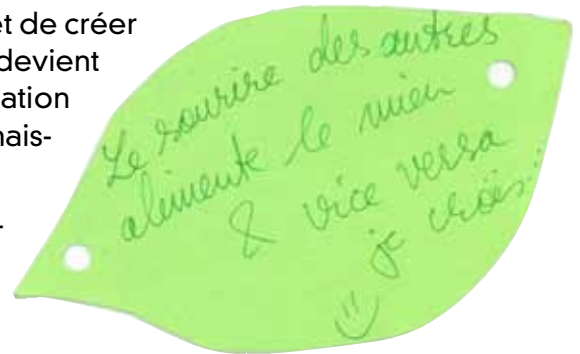 et de créer
devient
ation
nais-
Le sourire des autres
alimente le mien
& vice versa
je crois...